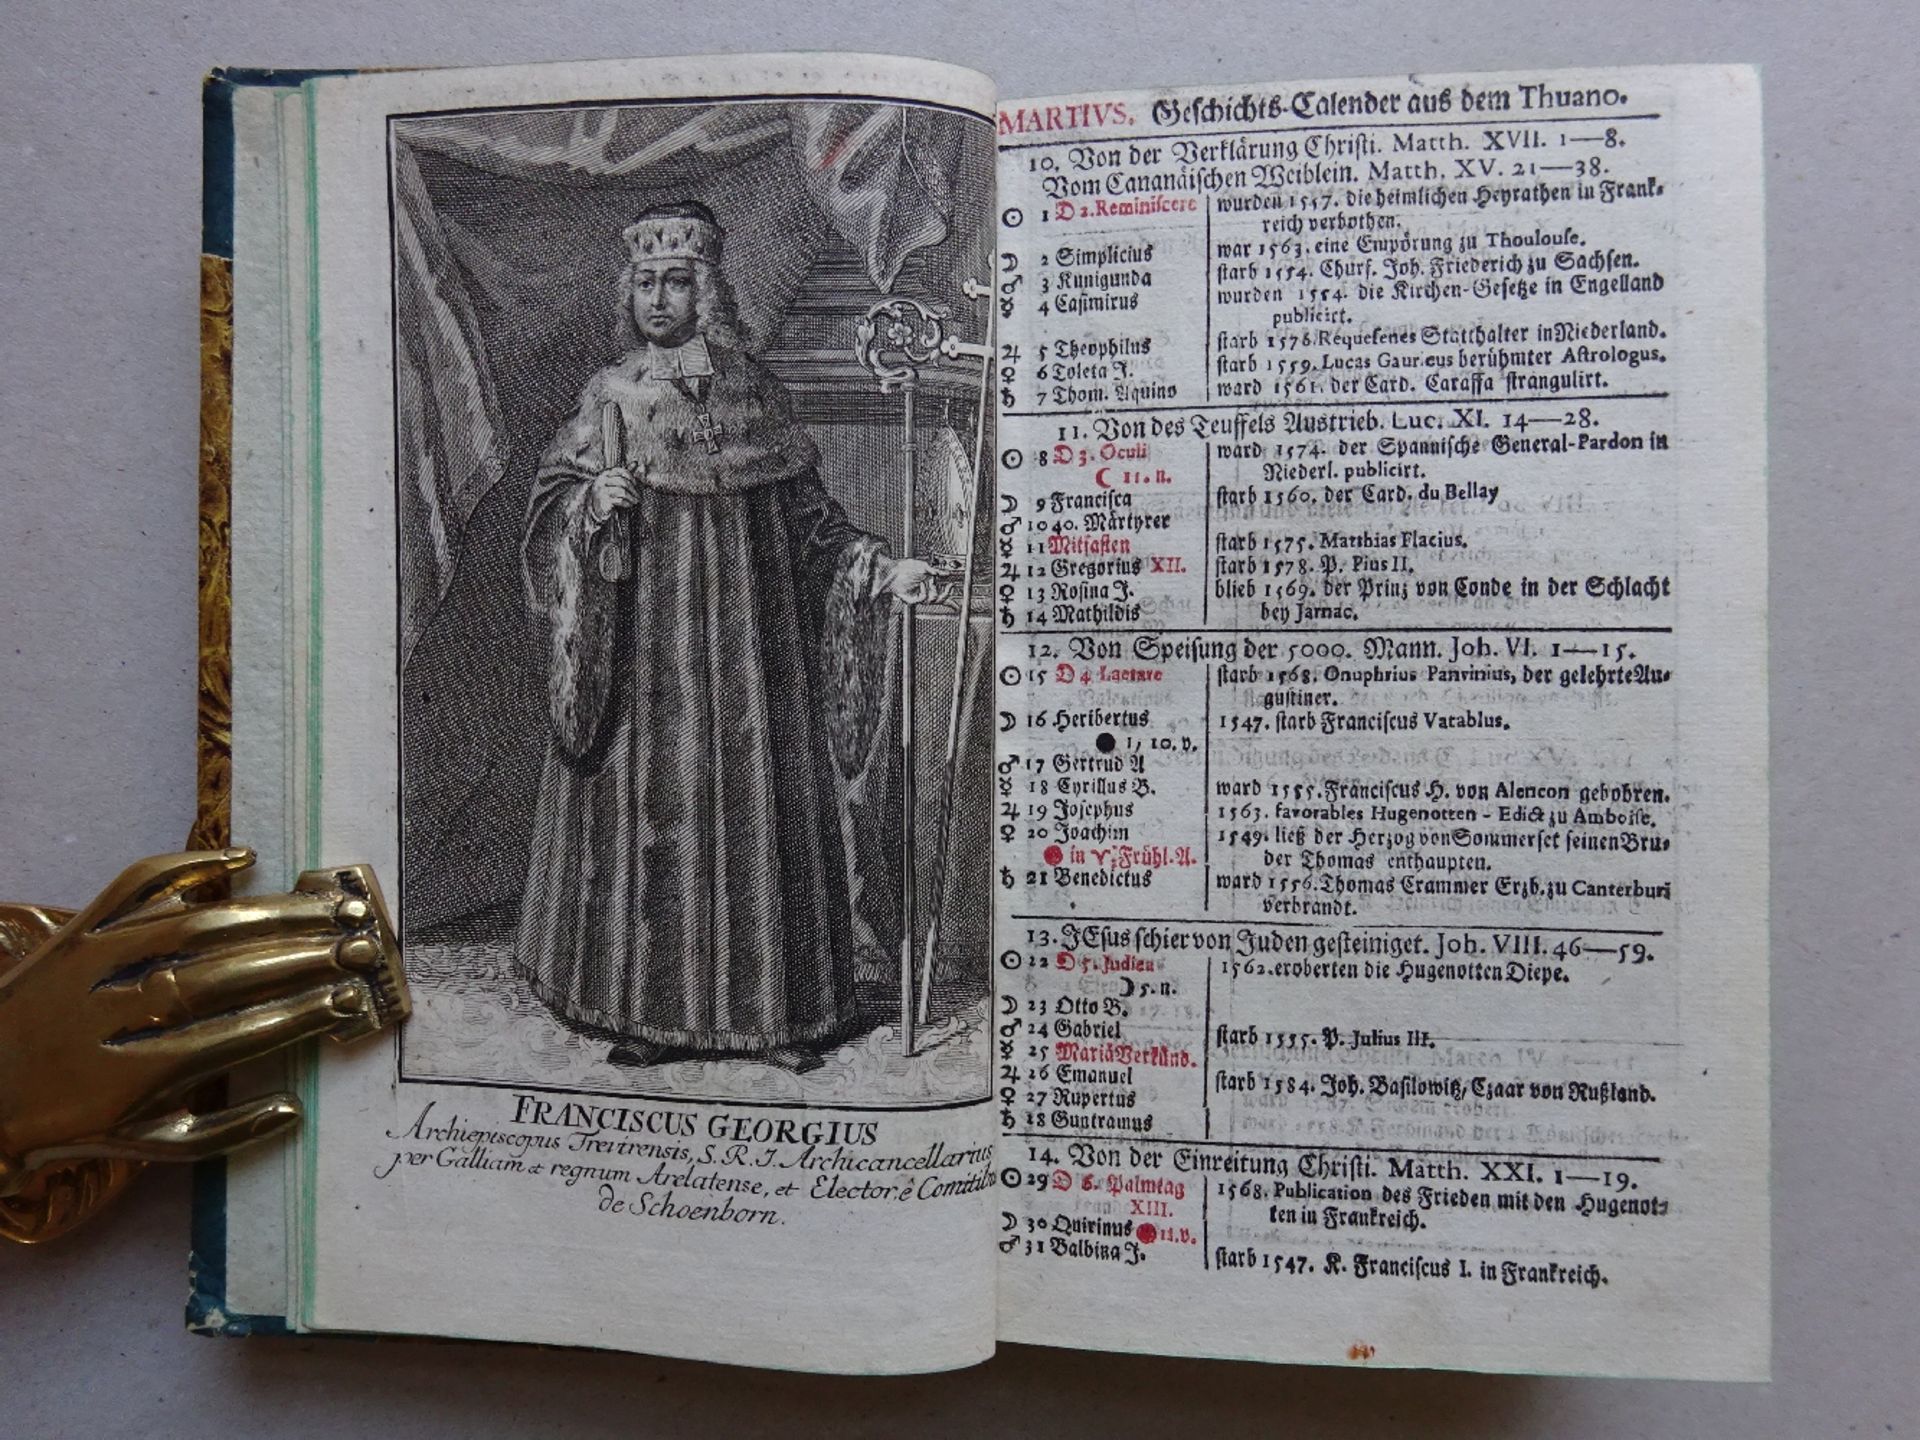 FRANCISCUS GEORGIUS
Archiepiscopus Trevirensis, S. R. I. Archicancellarius
per Galliam et regnum Arelatense, et Elector ê Comitib
de Schoenborn.
MARTIVS. Geſchichts-Calender aus dem Thuano.
10. Von der Verklärung Chriſti. Matth. XVII. 1—8.
Vom Cananäiſchen Weiblein. Matth. XV. 21—38.
☉ 1 D 2. Reminiſcere wurden 1557. die heimlichen Heyrathen in Frank-
reich verbothen.
☽ 2 Simplicius war 1563. eine Empörung zu Thoulouſe.
♂ 3 Kunigunda ſtarb 1554. Churf. Joh. Friederich zu Sachſen.
☿ 4 Caſimirus wurden 1554. die Kirchen-Geſetze in Engelland
publicirt.
♃ 5 Theophilus ſtarb 1576. Requeſenes Statthalter in Niederland.
♀ 6 Toleta J. ſtarb 1559. Lucas Gauricus berühmter Aſtrologus.
♄ 7 Thom. Aquino ward 1561. der Card. Caraffa ſtrangulirt.
11. Von des Teuffels Austrieb. Luc. XI. 14—28.
☉ 8 D 3. Oculi ward 1574. der Spanniſche General-Pardon in
☾ 11. n. Niederl. publicirt.
☽ 9 Franciſca ſtarb 1560. der Card. du Bellay
♂ 10 40. Märtyrer
☿ 11 Mitfaſten ſtarb 1575. Matthias Flacius.
♃ 12 Gregorius XII. ſtarb 1578. P. Pius II.
♀ 13 Roſina J. blieb 1569. der Prinz von Conde in der Schlacht
♄ 14 Mathildis bey Jarnac.
12. Von Speiſung der 5000. Mann. Joh. VI. 1—15.
☉ 15 D 4 Laetare ſtarb 1568. Onuphrius Panvinius, der gelehrte Au-
guſtiner.
☽ 16 Heribertus 1547. ſtarb Franciſcus Vatablus.
● 1, 10. v.
♂ 17 Gertrud A
☿ 18 Cyrillus B. ward 1555. Franciſcus H. von Alencon gebohren.
♃ 19 Joſephus 1563. favorables Hugenotten - Edict zu Amboiſe.
♀ 20 Joachim 1549. ließ der Herzog von Sommerſet ſeinen Bru-
● in ♈ Frühl. A. der Thomas enthaupten.
♄ 21 Benedictus ward 1556. Thomas Crammer Erzb. zu Canterburi
verbrandt.
13. JEſus ſchier von Juden geſteiniget. Joh. VIII. 46—59.
☉ 22 D 5. Judica 1562. eroberten die Hugenotten Diepe.
☽ 5. n.
☽ 23 Otto B.
♂ 24 Gabriel ſtarb 1555. P. Julius III.
☿ 25 Mariä Verkünd.
♃ 26 Emanuel ſtarb 1584. Joh. Baſilowitz, Czaar von Rußland.
♀ 27 Rupertus
♄ 28 Guntramus
14. Von der Einreitung Chriſti. Matth. XXI. 1—19.
☉ 29 D 6. Palmtag 1568. Publication des Frieden mit den Hugenot-
XIII. ten in Frankreich.
☽ 30 Quirinus ● 11. v.
♂ 31 Balbina J. ſtarb 1547. K. Franciſcus I. in Frankreich.